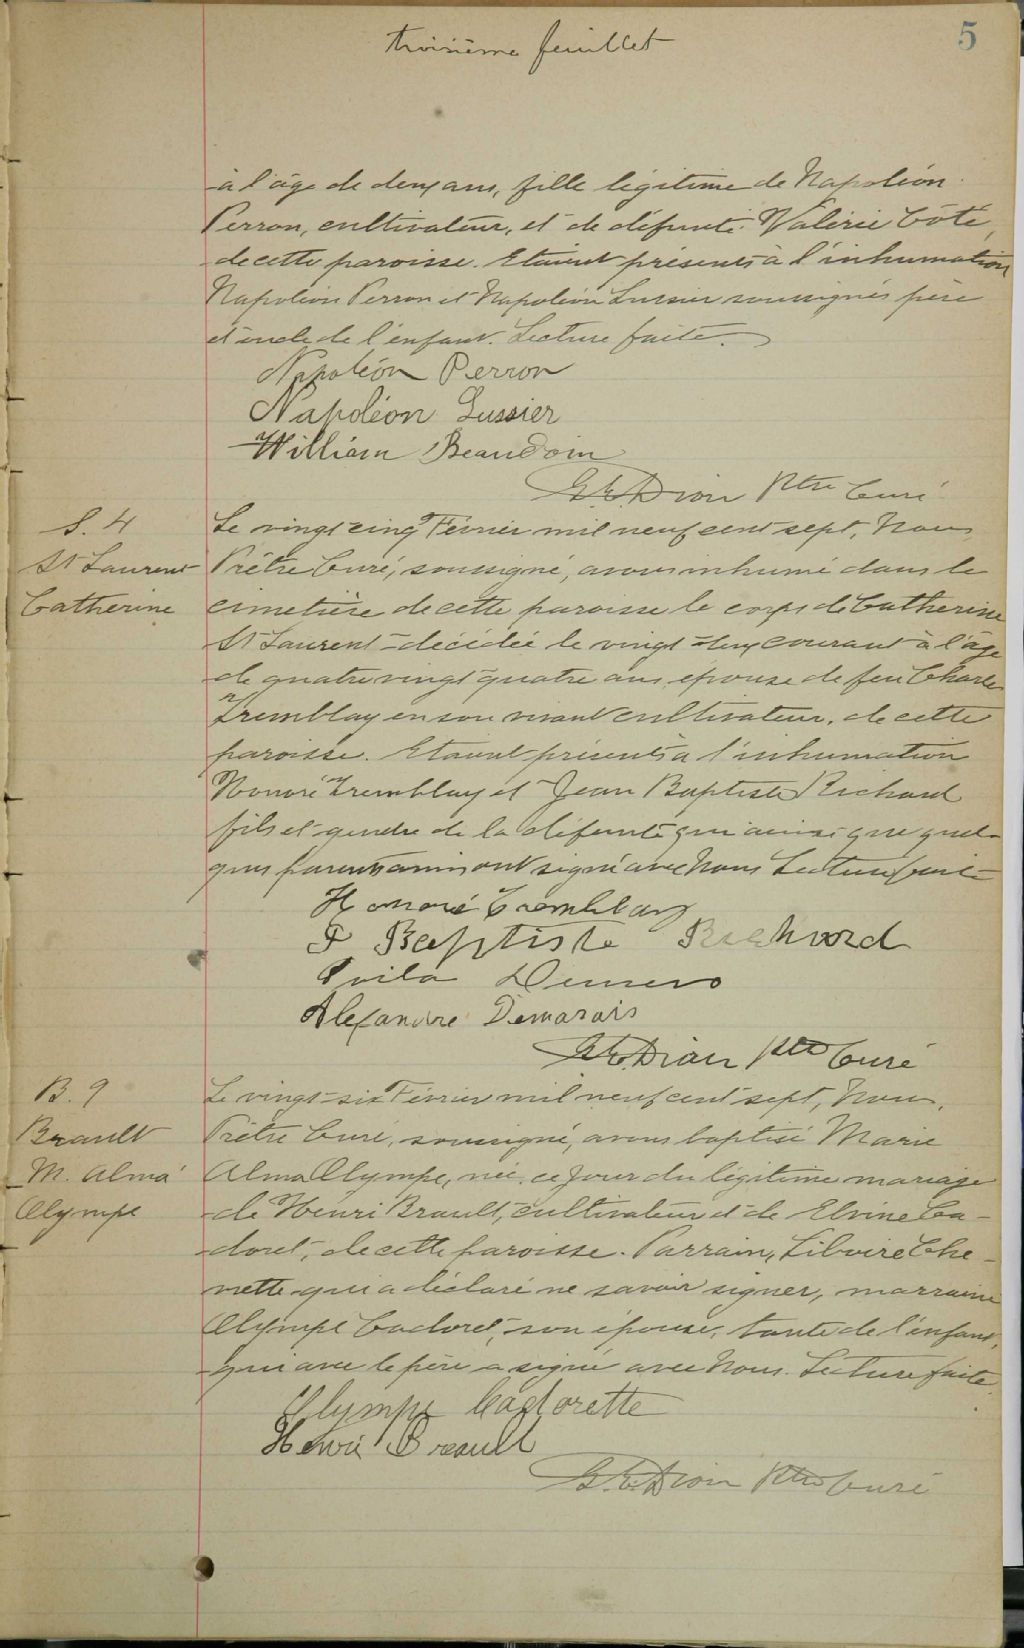 troisième feuillet
5
à l'âge de deux ans, fille légitime de Napoléon
Perron, cultivateur, et de défunte Valérie Côté,
de cette paroisse. Etaient présents à l'inhumation
Napoléon Perron et Napoléon Lussier soussignés père
et oncle de l'enfant. Lecture faite.
Napoléon Perron
Napoléon Lussier
William Beaudoin
Dion Ptre Curé
S. 4
St Laurent
Catherine
Le vingt cinq Février mil neuf cent sept, Nous
Prêtre Curé, soussigné, avons inhumé dans le
cimetière de cette paroisse le corps de Catherine
St Laurent décédée le vingt-deux courant à l'âge
de quatre vingt quatre ans, épouse de feu Charles
Tremblay en son vivant cultivateur, de cette
paroisse. Etaient présents à l'inhumation
Honoré Tremblay et Jean Baptiste Richard
fils et gendre de la défunte qui ainsi que quel-
ques parents amis ont signé avec Nous Lecture faite
Honoré Tremblay
Baptiste Richord
Alexandre Demarais
Dion Ptre Curé
B. 9
Brault
M. Alma
Olympe
Le vingt-six Février mil neuf cent sept, Nous,
Prêtre Curé, soussigné, avons baptisé Marie
Alma Olympe, née ce jour du légitime mariage
de Henri Brault, cultivateur et de Elvine Ca-
doret, de cette paroisse. Parrain, Liboire Che-
nette qui a déclaré ne savoir signer, marraine
Olympe Cadoret, son épouse, tante de l'enfant,
qui avec le père a signé avec Nous. Lecture faite.
Olympe Cadorette
Henri Breault
Dion Ptre Curé